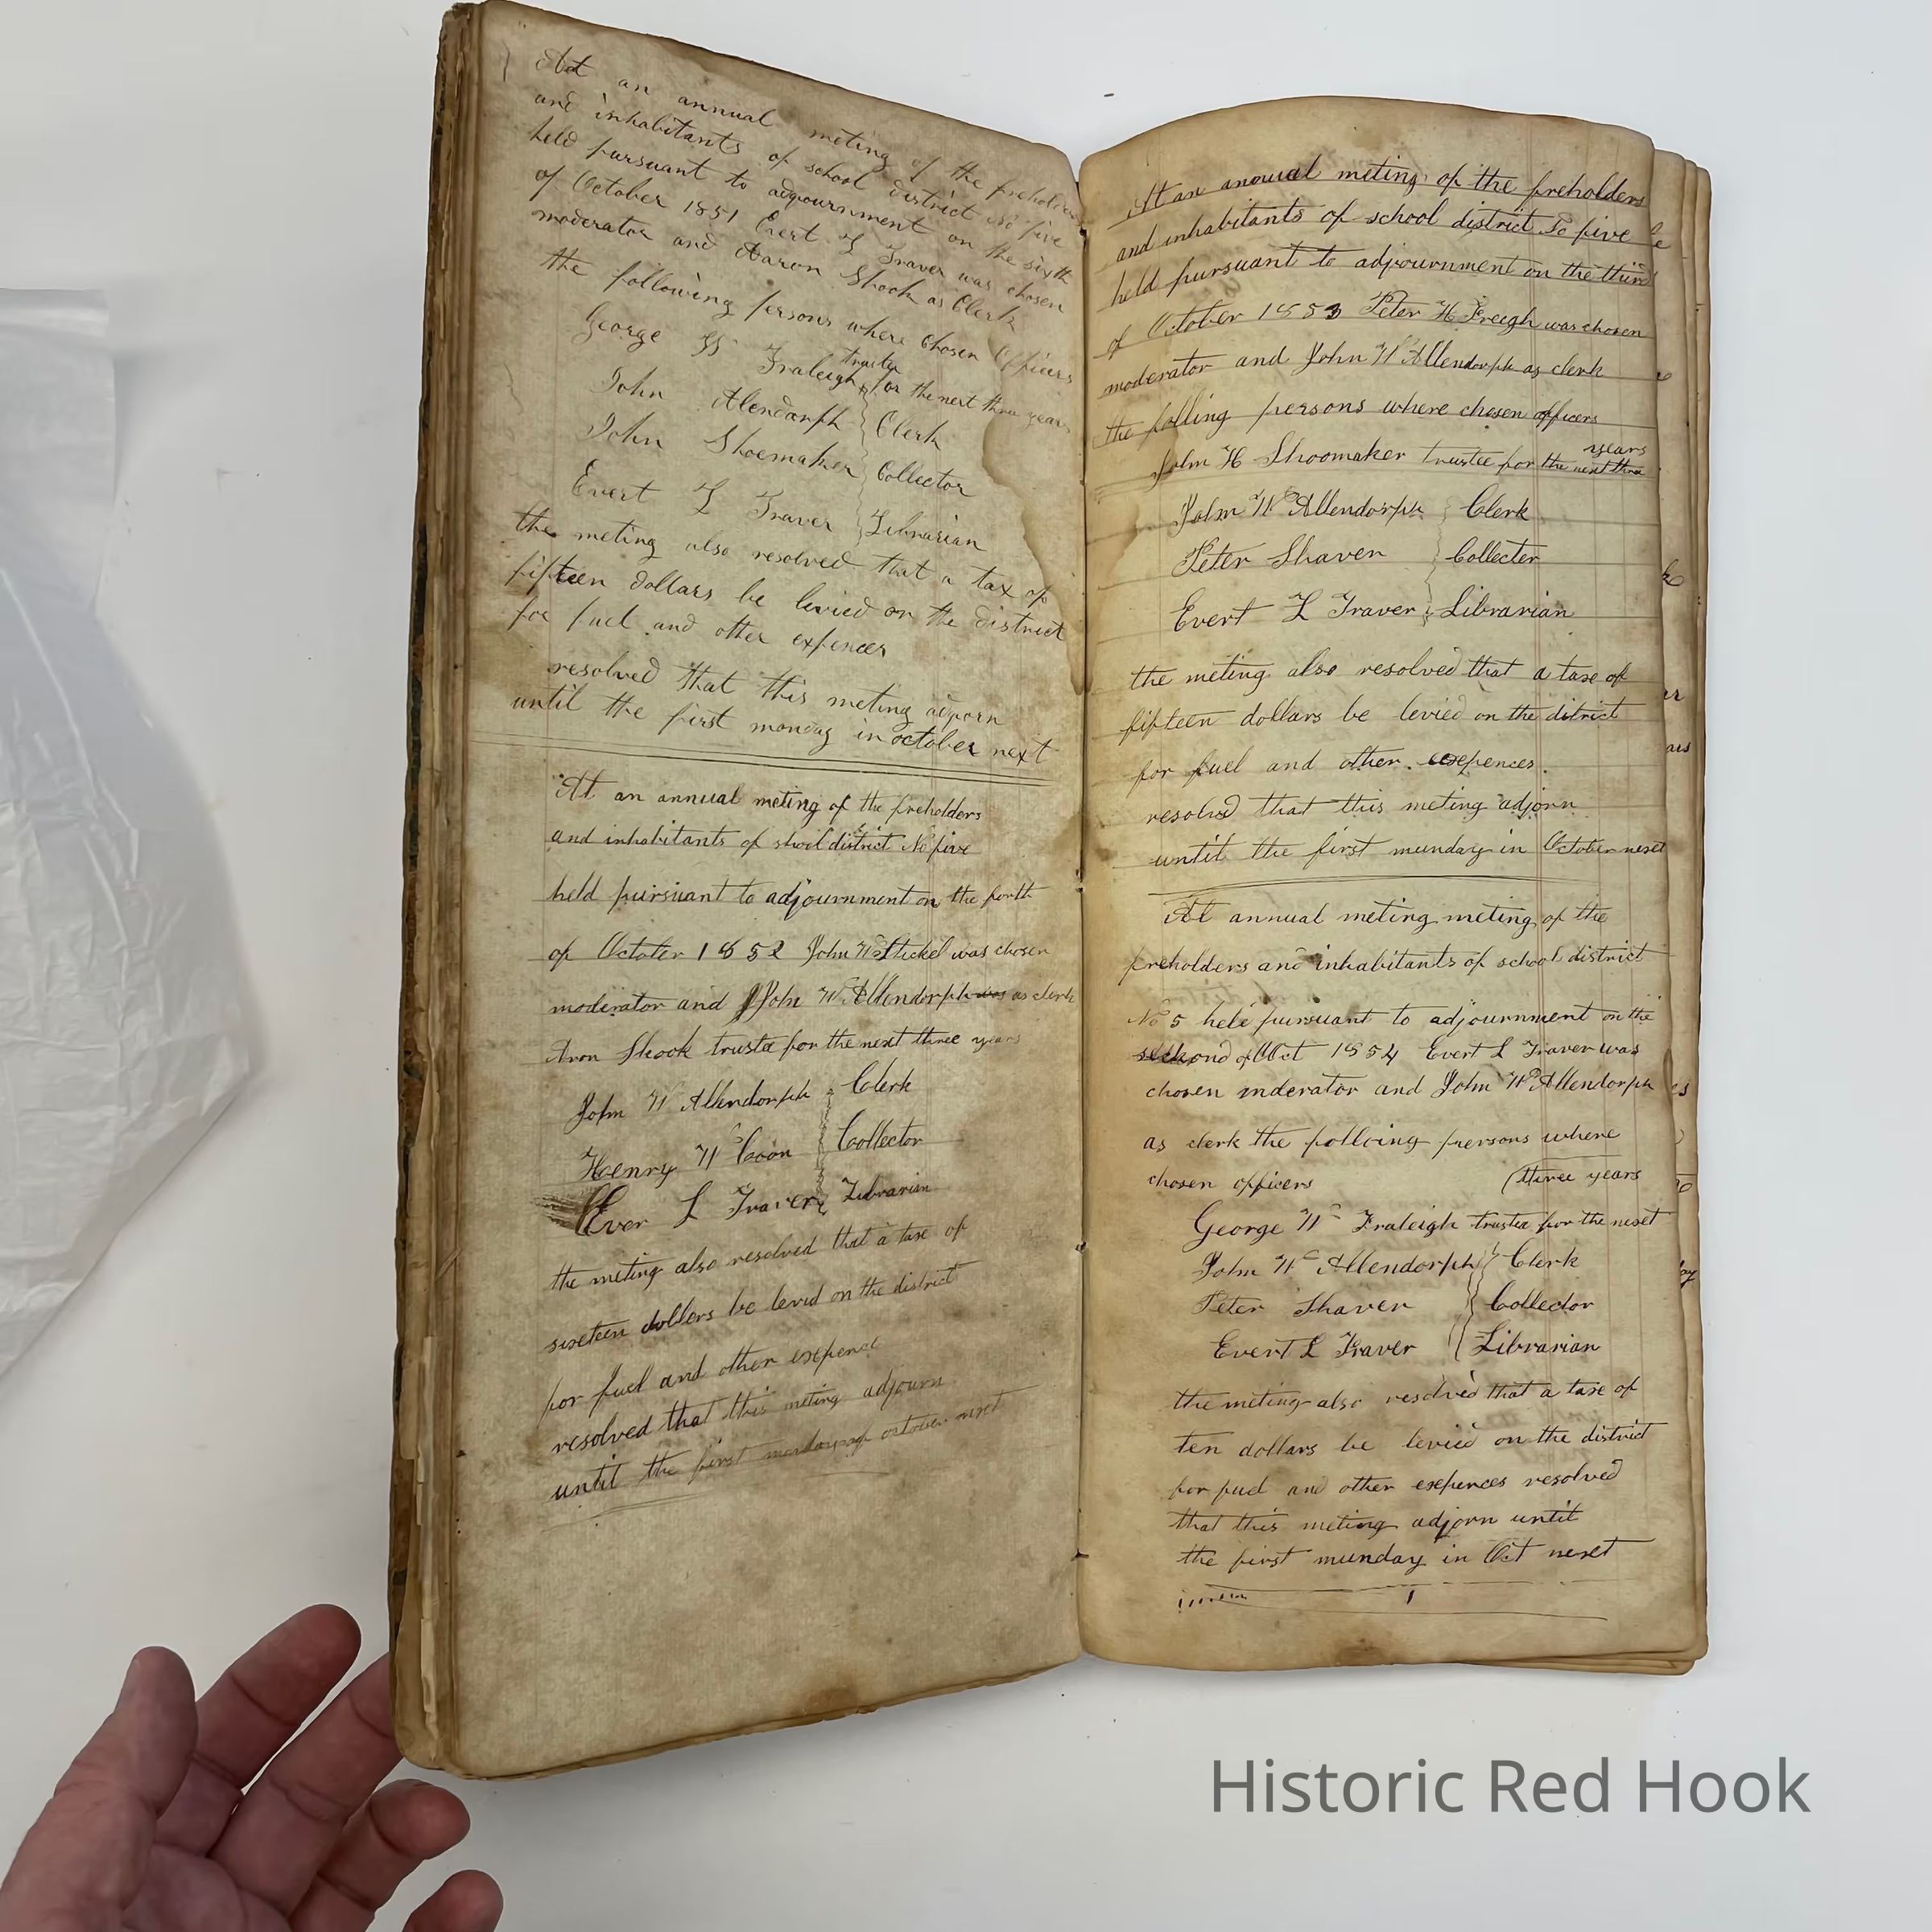 At an annual meting of the freholders
and inhabitants of school district No five
held pursuant to adjournment on the sixth
of October 1851 Evert L Traver was chosen
moderator and Aaron Shook as Clerk
the following persons where chosen Officers
George W Fraleigh trustee for the next three years
John Alendorph Clerk
John Shoemaker Collector
Evert L Traver Librarian
the meting also resolved that a tax of
fifteen dollars be levied on the district
for fuel and other expences
resolved that this meting adjorn
until the first monday in october next
At an annual meting of the freholders
and inhabitants of shool district No five
held pursuant to adjournment on the forth
of October 1852 John Wm Stickel was chosen
moderator and John Wm Allendorph was as clerk
Aron Shook trustee for the next three years
John W Allendorph Clerk
Henry W Coon Collector
Ever L Traver Librarian
the meting also resolved that a taxe of
sixeteen dollers be levid on the district
for fuel and other exepence
resolved that this meting adjourn
until the first october next
At an anouel meting of the freholders
and inhabitants of school district No five
held pursuant to adjournment on the third
of October 1853 Peter H Freigh was chosen
moderator and John Wm Allendorph as clerk
the folling persons where chosen officers
years
John H Shoomaker trustee for the next three
John Wm Allendorph Clerk
Peter Shaver Collecter
Evert L Traver Librarian
the meting also resolved that a taxe of
fifteen dollars be levied on the ditrict
for fuel and other exepences.
resolved that this meting adjorn
until the first munday in October nexet
At annual meting meting of the
freholders and inhabitants of school district
No 5 held pursuant to adjournment on the
seckond of Oct 1854 Evert L Traver was
chosen moderator and John Wm Allendorph
as clerk the folloing persons where
chosen officers (three years
George Wm Fraleigh trustee for the nexet
John Wm Allendorph Clerk
Peter Shaver Collector
Evert L Traver Librarian
the meting also resolved that a taxe of
ten dollars be levied on the district
for fuel and other exepences resolved
that this meting adjorn until
the first munday in Oct nexet
Historic Red Hook